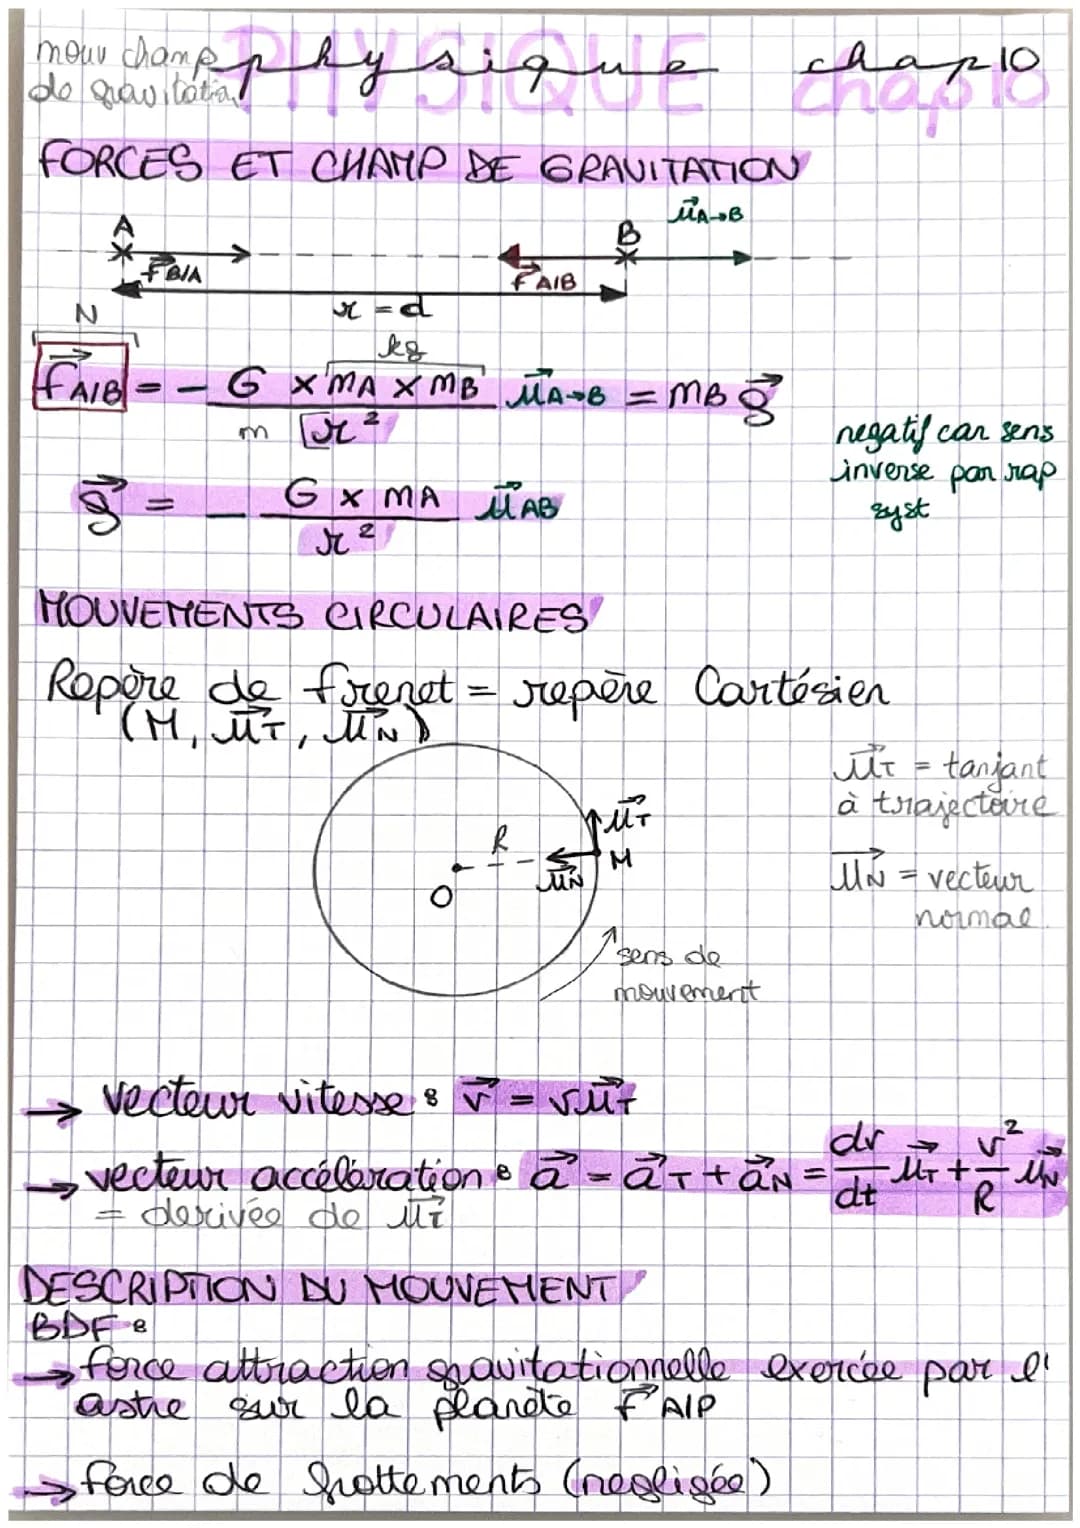 mouv champ
de gravitation
PHYSIQUE chap 10
physique chap 10
FORCES ET CHAMP DE GRAVITATION
A B u⃗A→B
F⃗B/A F⃗A/B
r = d
N kg
F⃗A/B = - G × mA × mB / r² u⃗A→B = mB g⃗
m
negatif car sens
inverse par rap
syst
g⃗ = - G × mA / r² u⃗AB
MOUVEMENTS CIRCULAIRES
Repère de frenet = repère Cartésien
(M, u⃗T, u⃗N)
u⃗T = tanjant
à trajectoire
u⃗T
R
M
u⃗N
O
u⃗N = vecteur
normal
sens de
mouvement
→ vecteur vitesse : v⃗ = v u⃗T
→ vecteur accélération : a⃗ = a⃗T + a⃗N = dv/dt u⃗T + v²/R u⃗N
= derivée de u⃗T
DESCRIPTION DU MOUVEMENT
BDF :
→ force attraction gravitationnelle exercée par l'
astre sur la planète F⃗A/P
→ force de frottements (negligée)